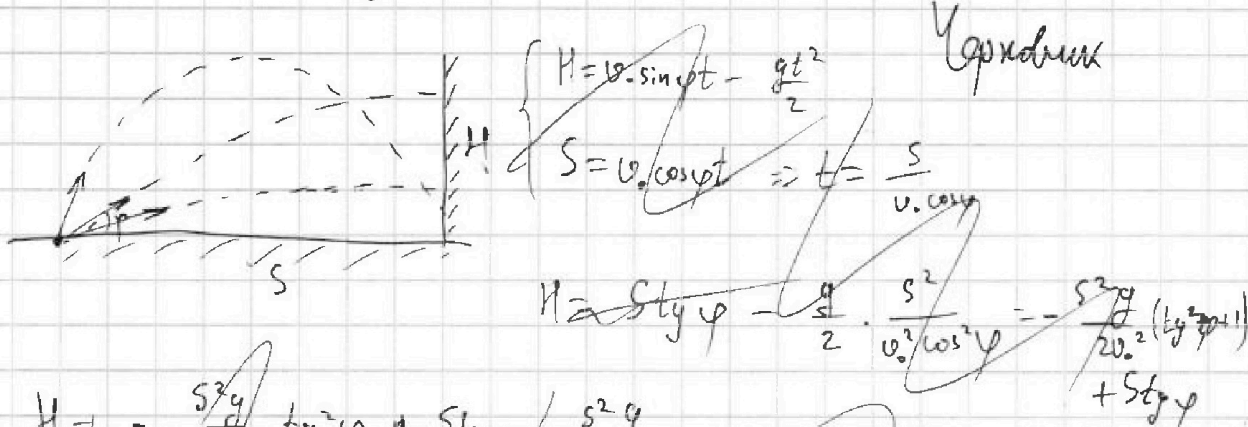 Черновик
H = v₀ sinφt - gt²/2
H
S = v₀ cosφt ⇒ t = S/(v₀ cosφ)
φ
S
H = S tgφ - g/2 · S²/(v₀² cos²φ) = - S²g/(2v₀²) (tg²φ+1)
+ S tgφ